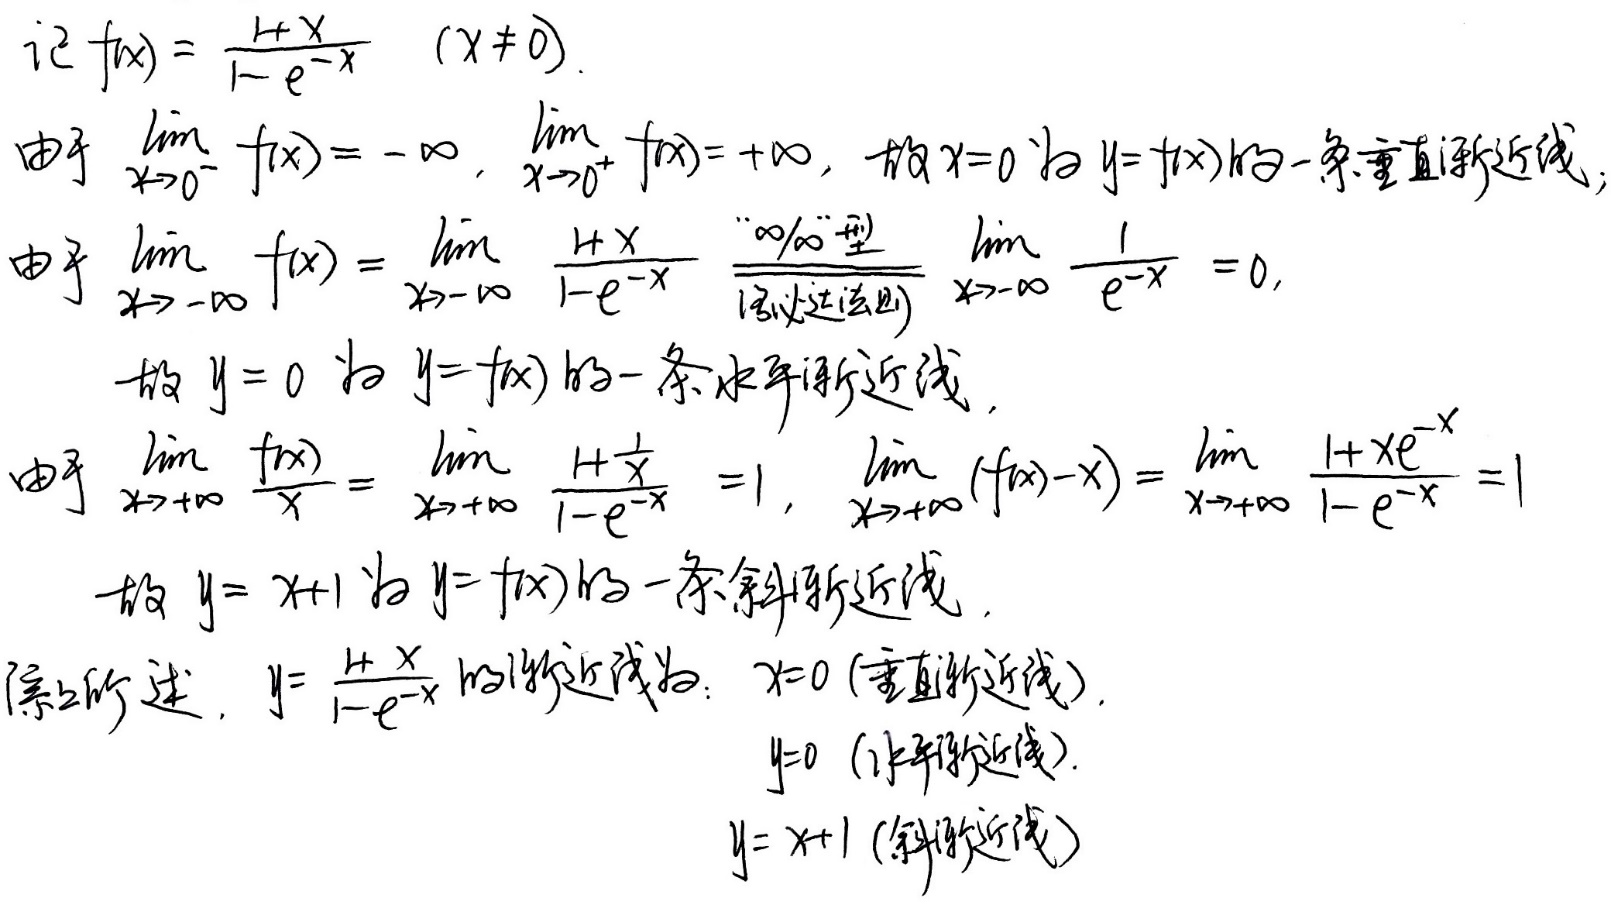 记 f(x) = \frac{1+x}{1-e^{-x}} (x≠0).
由于 \lim_{x→0^-} f(x) = -∞, \lim_{x→0^+} f(x) = +∞, 故 x=0 为 y=f(x) 的一条垂直渐近线;
由于 \lim_{x→-∞} f(x) = \lim_{x→-∞} \frac{1+x}{1-e^{-x}} \xlongequal[洛必达法则]{"∞/∞"型} \lim_{x→-∞} \frac{1}{e^{-x}} = 0,
故 y=0 为 y=f(x) 的一条水平渐近线,
由于 \lim_{x→+∞} \frac{f(x)}{x} = \lim_{x→+∞} \frac{1+\frac{1}{x}}{1-e^{-x}} = 1, \lim_{x→+∞} (f(x)-x) = \lim_{x→+∞} \frac{1+xe^{-x}}{1-e^{-x}} = 1
故 y=x+1 为 y=f(x) 的一条斜渐近线.
综上所述, y = \frac{1+x}{1-e^{-x}} 的渐近线为: x=0 (垂直渐近线),
y=0 (水平渐近线).
y=x+1 (斜渐近线)